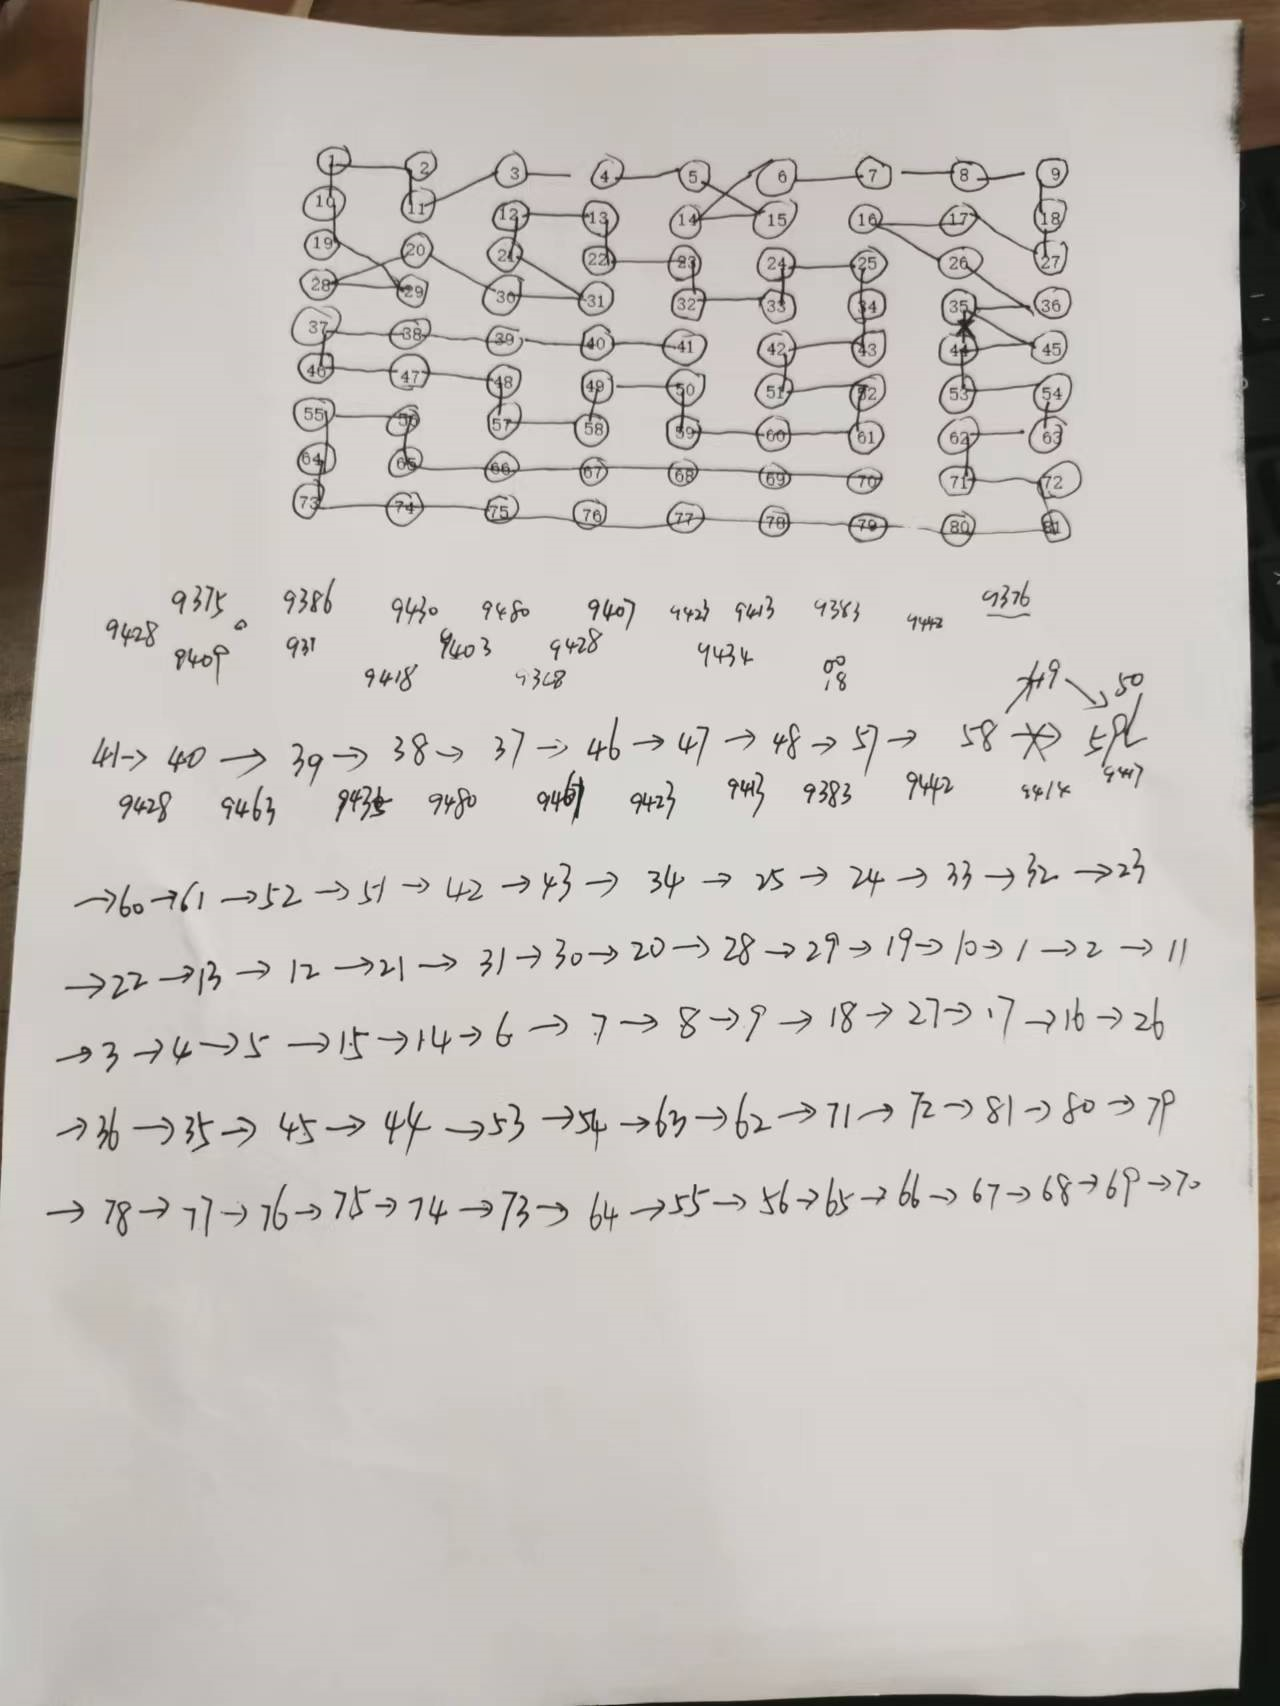 1 2 3 4 5 6 7 8 9
10 11 12 13 14 15 16 17 18
19 20 21 22 23 24 25 26 27
28 29 30 31 32 33 34 35 36
37 38 39 40 41 42 43 44 45
46 47 48 49 50 51 52 53 54
55 56 57 58 59 60 61 62 63
64 65 66 67 68 69 70 71 72
73 74 75 76 77 78 79 80 81
9375 9386 9430 9480 9407 9423 9413 9383 9442 9376
9428 9409 931 9403 9428 9434
9418 9368 18
49 50
41→ 40 → 39 → 38 → 37 → 46 → 47 → 48 → 57 → 58 → 59
9428 9463 943 9480 9423 9413 9383 9442 9414 9417
→60 →61 →52 →51 → 42 →43 → 34 → 25 → 24 → 33 → 32 →23
→22 →13 → 12 →21 → 31 →30 → 20 → 28 → 29 → 19 → 10 → 1 → 2 → 11
→ 3 → 4 → 5 → 15 → 14 → 6 → 7 → 8 → 9 → 18 → 27 → 17 → 16 → 26
→ 36 → 35 → 45 → 44 → 53 → 54 → 63 → 62 → 71 → 72 → 81 → 80 → 79
→ 78 → 77 → 76 → 75 → 74 → 73 → 64 → 55 → 56 → 65 → 66 → 67 → 68 → 69 → 70